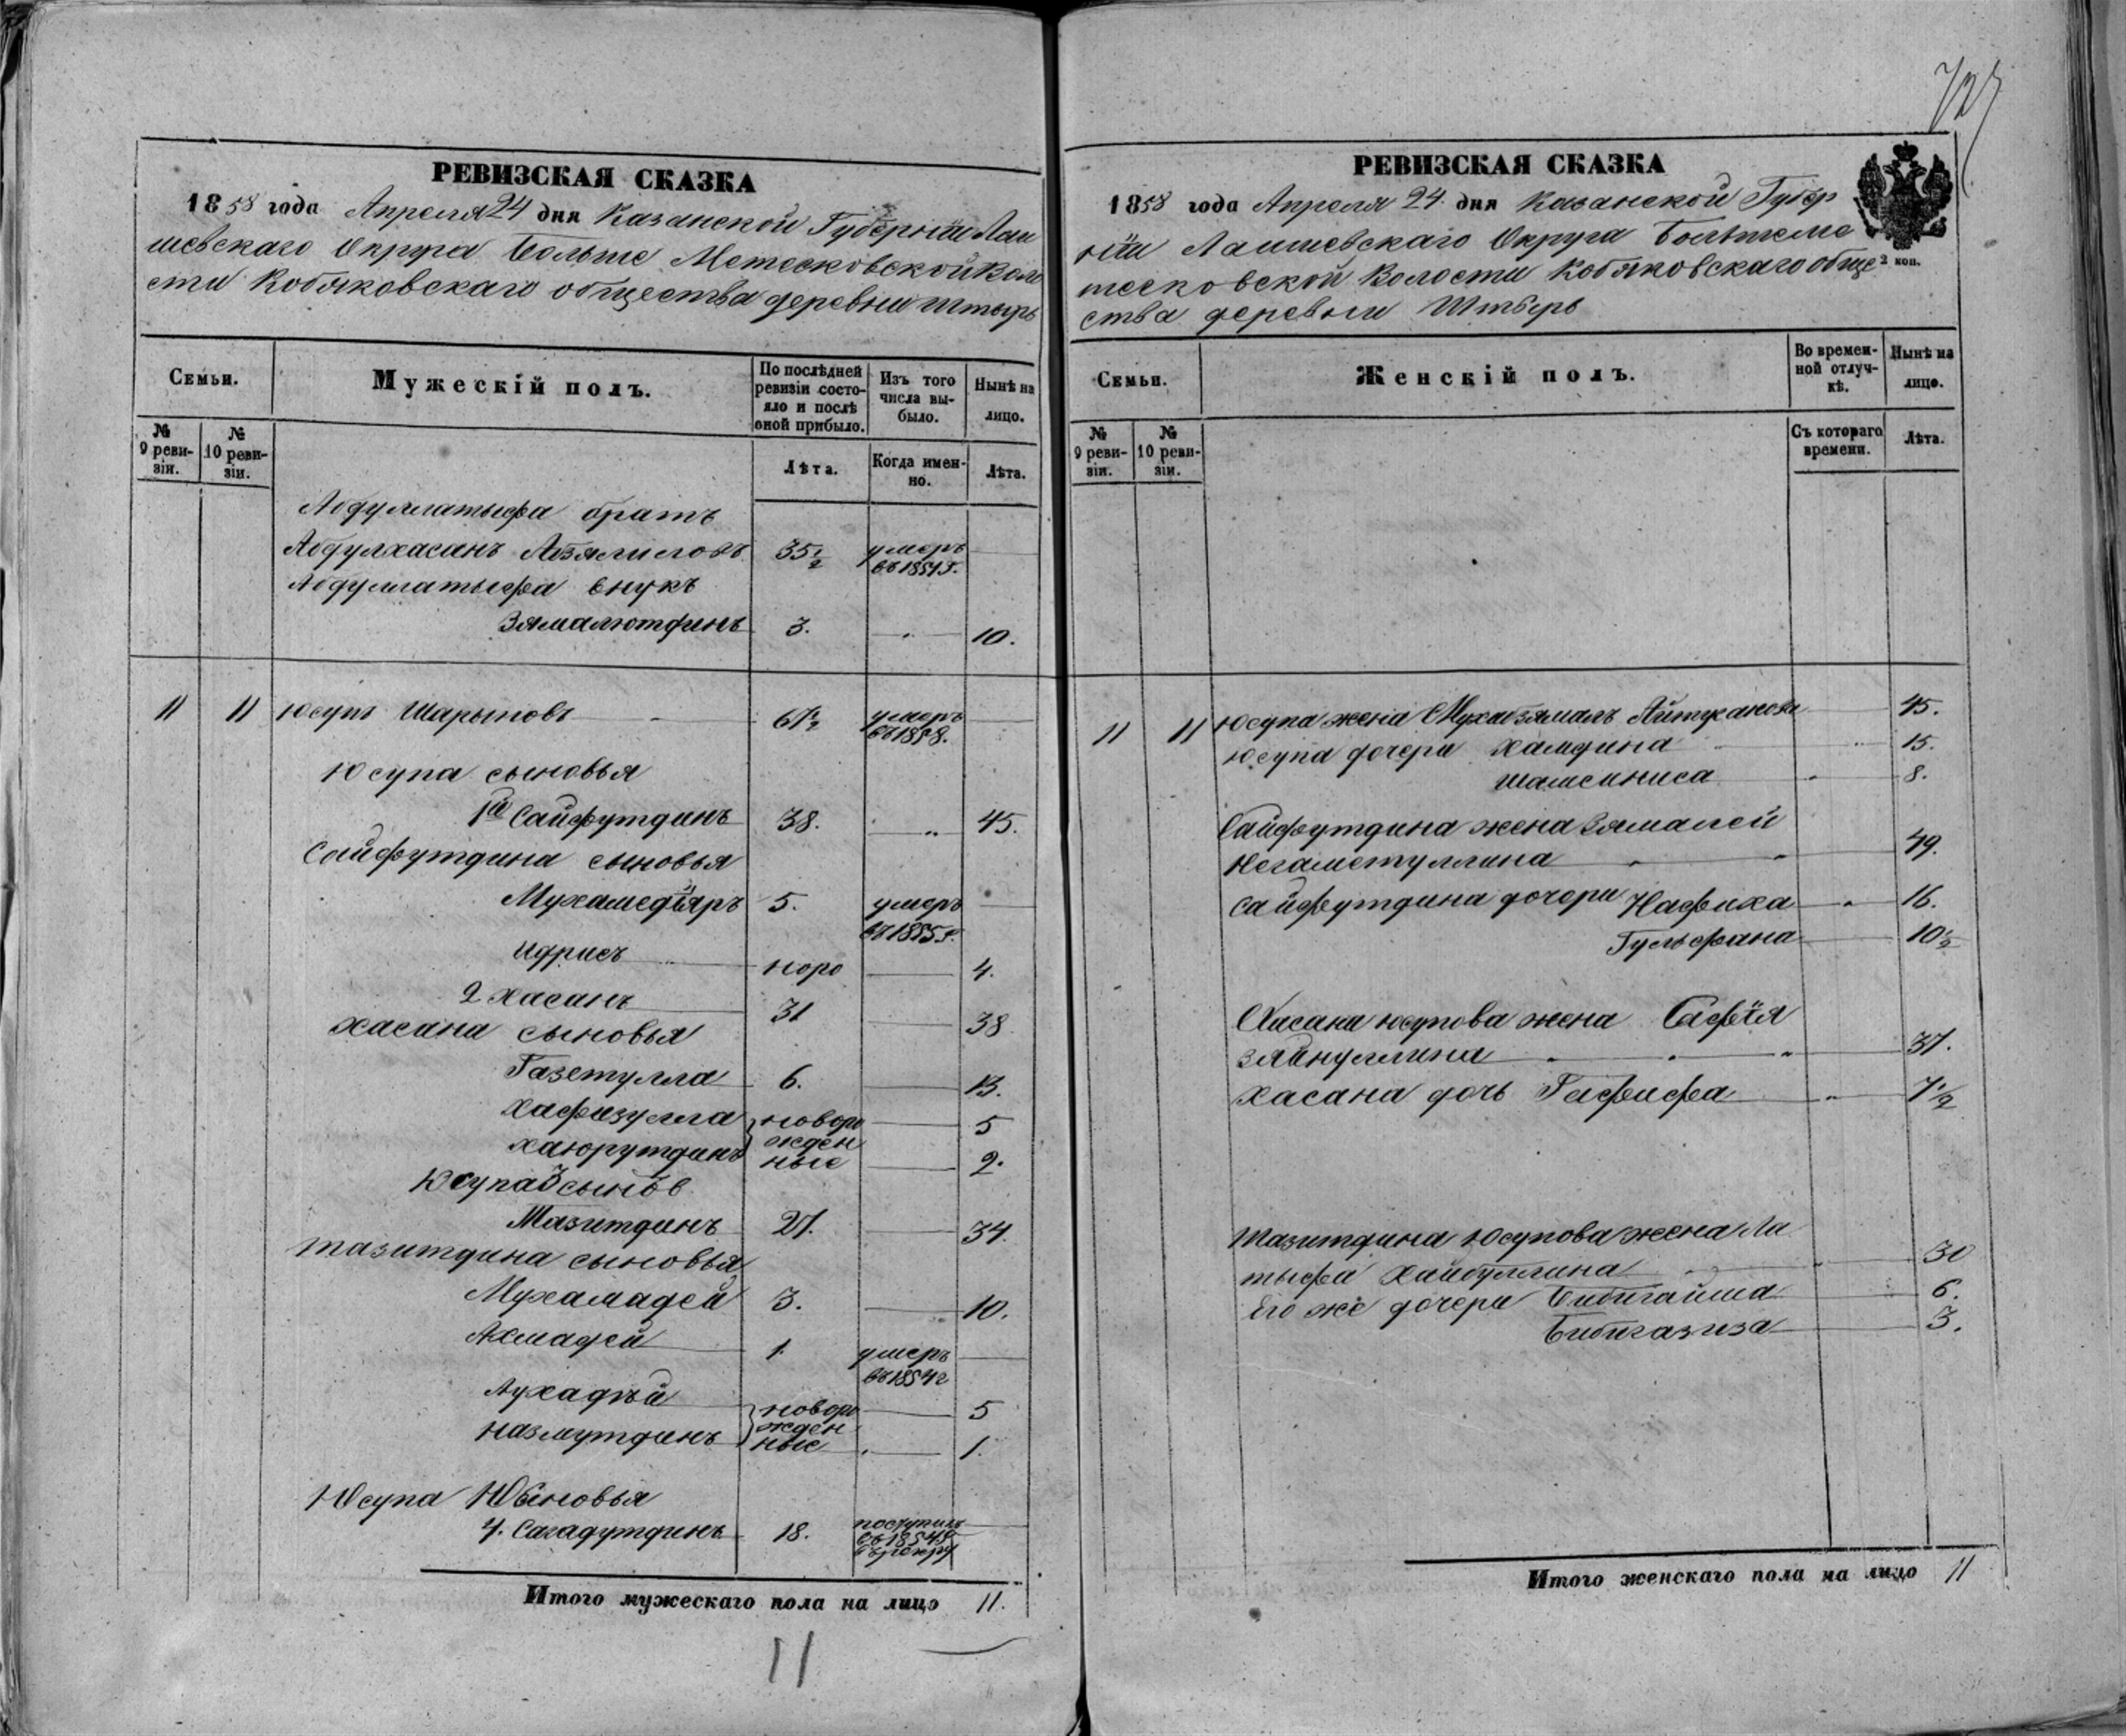 725
РЕВИЗСКАЯ СКАЗКА
1858 года Апреля 24 дня Казанской Губернiи Лаи
шевскаго Округа Больше Метесковской Воло
сти Кобяковскаго общества деревни Штырь
Семьи.
Мужескiй полъ.
По послѣдней ревизiи состо-
яло и послѣ
оной прибыло.
Изъ того
числа вы-
было.
Нынѣ на
лицо.
№
9 реви-
зiи.
№
10 реви-
зiи.
Лѣта.
Когда имен-
но.
Лѣта.
Абдуллатыфа братъ
Абдулхасанъ Абзялиловъ 35½ умеръ
въ 1851 г.
Абдуллатыфа внукъ
Зямалютдинъ 3. 10.
11 11 Юсупъ Шарыповъ 67½ умеръ
въ 1858.
Юсупа сыновья
1й Сайфутдинъ 38. 45.
Сайфутдина сыновья
Мухамедъяръ 5. умеръ
въ 1855 г.
Идрисъ норо 4.
2 Хасанъ 31 38
Хасана сыновья
Газетулла 6. 13.
Хафизулла новоро 5
Хаюрутдинъ жден
ные 2.
Юсупа 3 сынъ
Мазитдинъ 27. 34.
Мазитдина сыновья
Мухамадей 3. 10.
Ахмадей 1. умеръ
въ 1854 г
Аухадѣй новоро 5
Назмутдинъ жден
ные 1.
Юсупа Юсыновья
4. Сагадутдинъ 18. поступилъ
въ 1854 г.
въ рекру
Итого мужескаго пола на лицо 11.
11
РЕВИЗСКАЯ СКАЗКА
1858 года Апреля 24 дня Казанской Губер
нiи Лаишевскаго Округа Большеме
тесковской Волости Кобяковскаго обще
2 коп.
ства деревни Штырь
Семьи.
Женскiй полъ.
Во времен-
ной отлуч-
кѣ.
Нынѣ на
лицо.
№
9 реви-
зiи.
№
10 реви-
зiи.
Съ котораго
времени.
Лѣта.
11 11 Юсупа жена Мухабзямалъ Айтуканова 45.
Юсупа дочери Хамдина 15.
Шамсиниса 8.
Сайфутдина жена Зямалей
Негаметуллина 49.
Сайфутдина дочери Нафика 16.
Гульфана 10½
Хасана Юсупова жена Сафiя
Зяйнуллина 37.
Хасана дочь Гафифа 7½
Мазитдина Юсупова жена Ла
тыфа Хайбуллина 30
Его же дочери Бибигайша 6.
Бибигазиза 3.
Итого женскаго пола на лицо 11